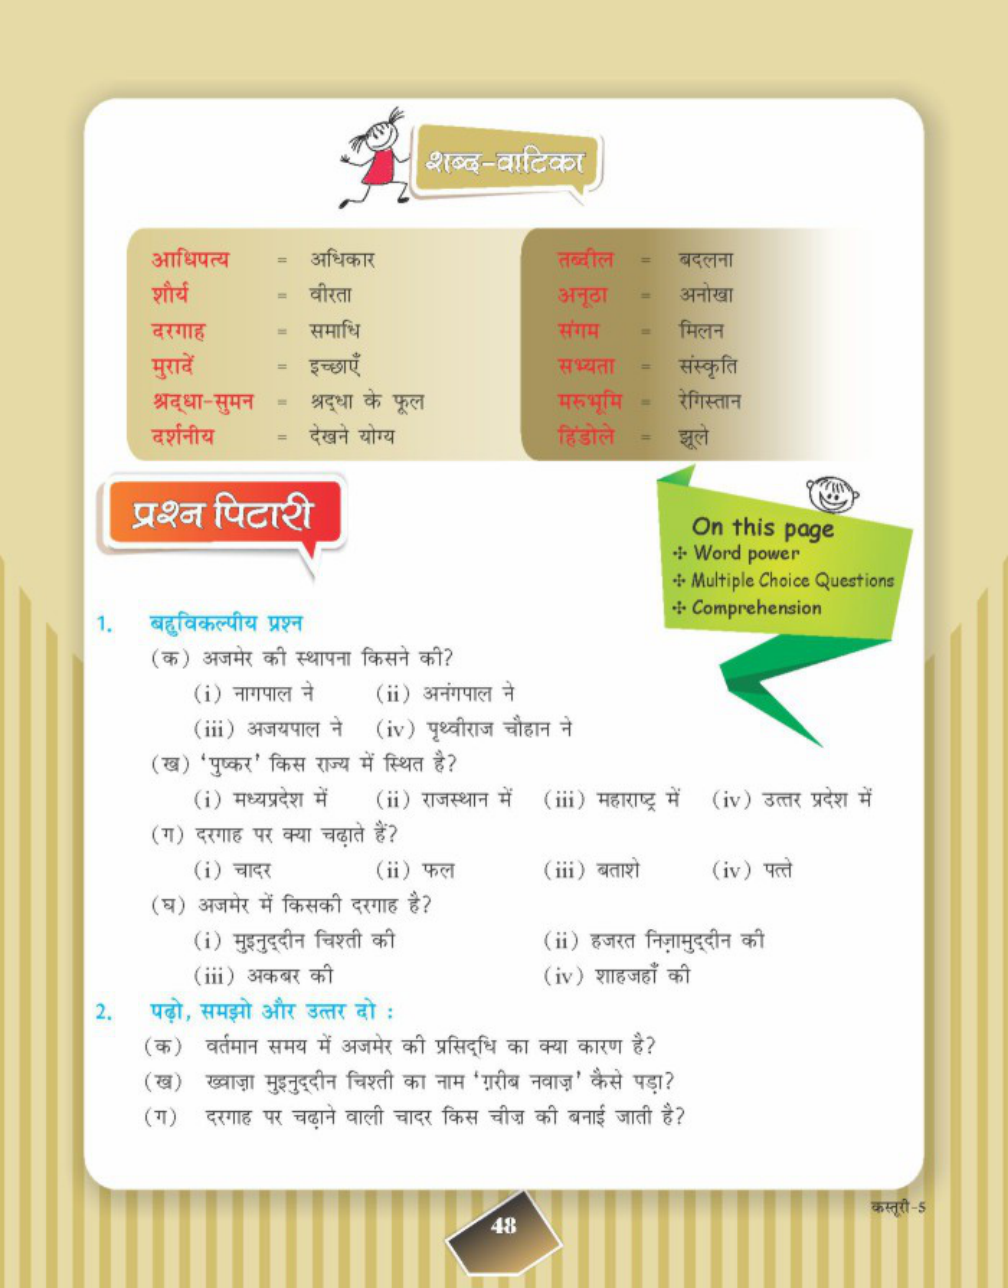 शब्द-वाटिका
आधिपत्य = अधिकार
शौर्य = वीरता
दरगाह = समाधि
मुरादें = इच्छाएँ
श्रद्धा-सुमन = श्रद्धा के फूल
दर्शनीय = देखने योग्य
तब्दील = बदलना
अनूठा = अनोखा
संगम = मिलन
सभ्यता = संस्कृति
मरुभूमि = रेगिस्तान
हिंडोले = झूले
प्रश्न पिटारी
On this page
✣ Word power
✣ Multiple Choice Questions
✣ Comprehension
1. बहुविकल्पीय प्रश्न
(क) अजमेर की स्थापना किसने की?
(i) नागपाल ने (ii) अनंगपाल ने
(iii) अजयपाल ने (iv) पृथ्वीराज चौहान ने
(ख) ‘पुष्कर’ किस राज्य में स्थित है?
(i) मध्यप्रदेश में (ii) राजस्थान में (iii) महाराष्ट्र में (iv) उत्तर प्रदेश में
(ग) दरगाह पर क्या चढ़ाते हैं?
(i) चादर (ii) फल (iii) बताशे (iv) पत्ते
(घ) अजमेर में किसकी दरगाह है?
(i) मुइनुद्दीन चिश्ती की (ii) हजरत निज़ामुद्दीन की
(iii) अकबर की (iv) शाहजहाँ की
2. पढ़ो, समझो और उत्तर दो :
(क) वर्तमान समय में अजमेर की प्रसिद्धि का क्या कारण है?
(ख) ख्वाज़ा मुइनुद्दीन चिश्ती का नाम ‘ग़रीब नवाज़’ कैसे पड़ा?
(ग) दरगाह पर चढ़ाने वाली चादर किस चीज़ की बनाई जाती है?
कस्तूरी-5
48